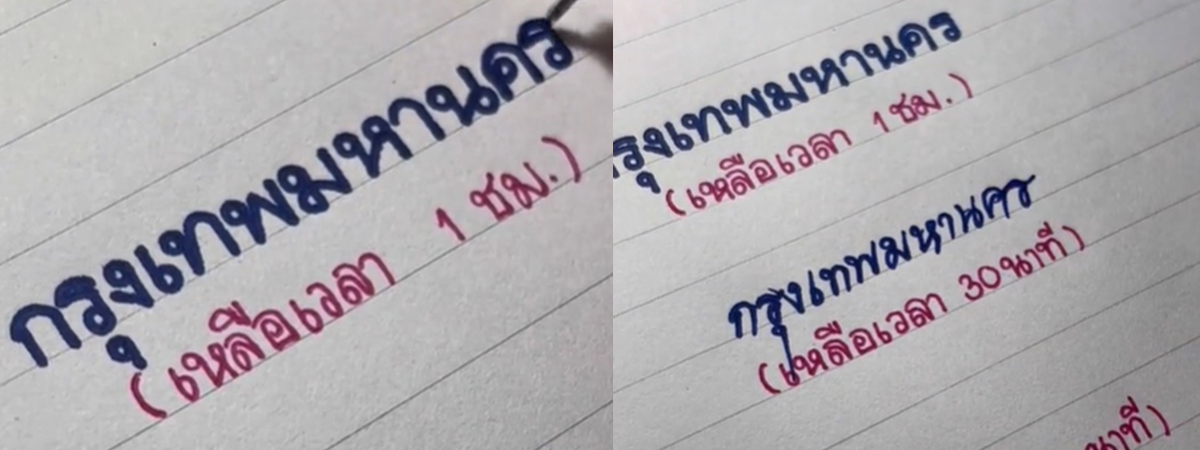 กรุงเทพมหานคร
(เหลือเวลา 1 ชม.)
รุงเทพมหานคร
(เหลือเวลา 1 ชม.)
กรุงเทพมหานคร
(เหลือเวลา 30 นาที)
นาที)